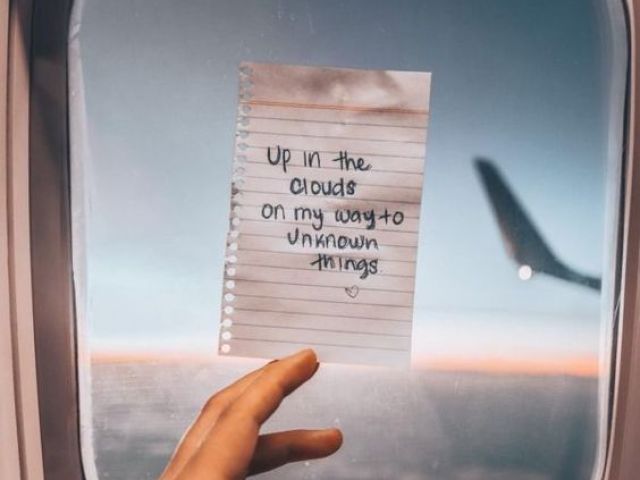 Up in the
clouds
on my way to
Unknown
things